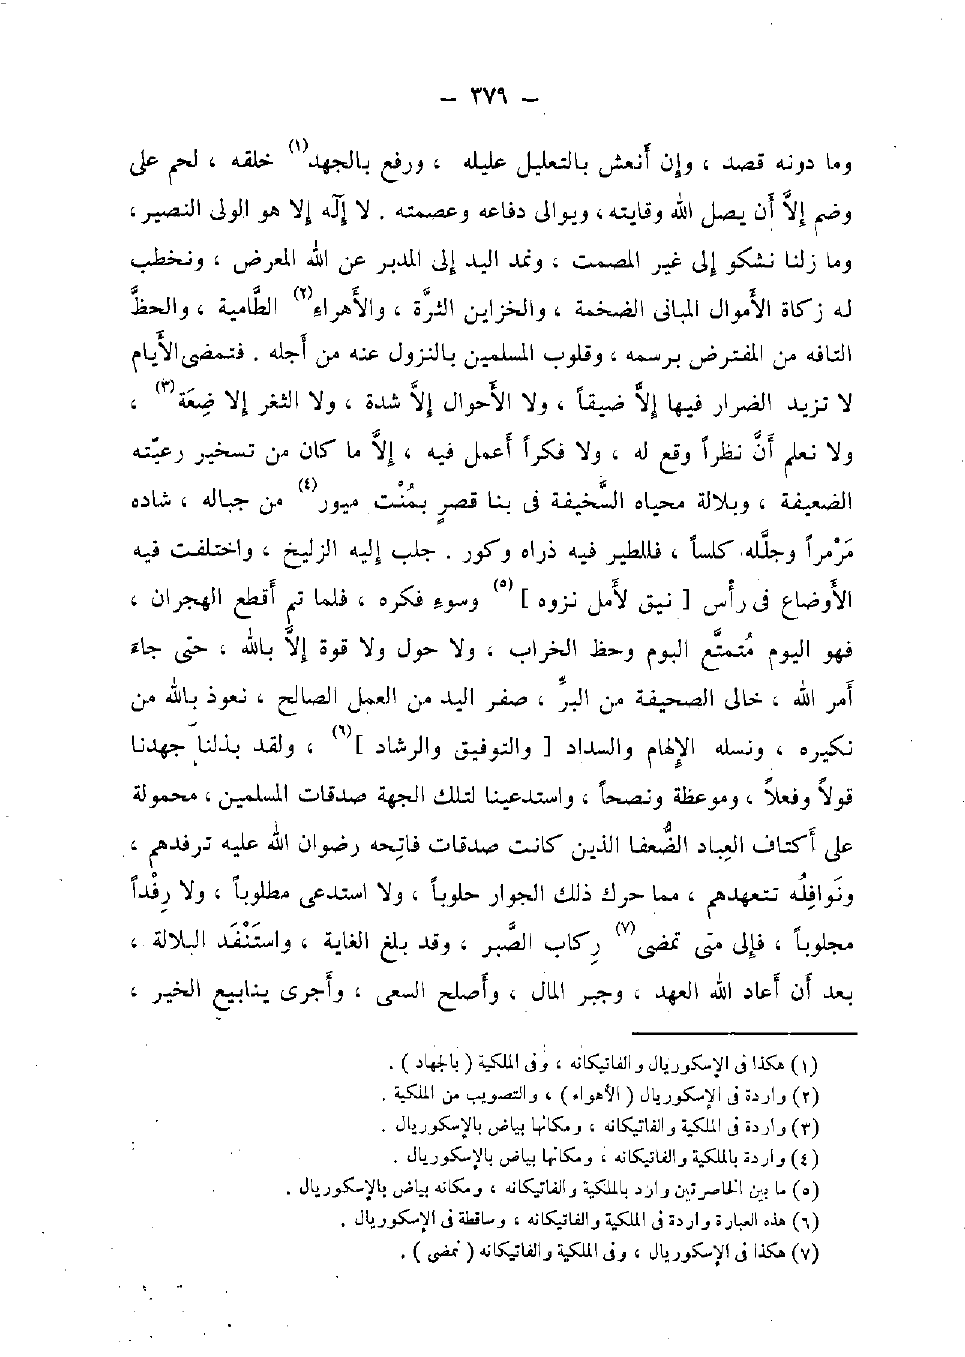 — ٣٧٩ —
وما دونه قصد ، وإن أنعش بالتعليل عليله ، ورفع بالجهد(١) خلقه ، لحم على
وضم إلاَّ أن يصل الله وقايته ، ويوالى دفاعه وعصمته . لا إلّه إلا هو الولى النصير ،
وما زلنا نشكو إلى غير المصمت ، ونمد اليد إلى المدبر عن الله المعرض ، ونخطب
له زكاة الأموال المبانى الضخمة ، والخزاين الثرَّة ، والأهراء(٢) الطَّامية ، والحظَّ
التافه من المفترض برسمه ، وقلوب المسلمين بالنزول عنه من أجله . فتمضى الأيام
لا تزيد الضرار فيها إلاَّ ضيقاً ، ولا الأحوال إلاَّ شدة ، ولا الثغر إلا ضِعَة(٣) ،
ولا نعلم أنَّ نظراً وقع له ، ولا فكراً أعمل فيه ، إلاَّ ما كان من تسخير رعيّته
الضعيفة ، وبلالة محياه السَّخيفة فى بنا قصرٍ بمُنْت ميور(٤) من جباله ، شاده
مَرْمراً وجلَّله كلساً ، فللطير فيه ذراه وكور . جلب إليه الزليخ ، واختلفت فيه
الأوضاع فى رأس [ نيق لأمل نزوه ](٥) وسوء فكره ، فلما تم أقطع الهجران ،
فهو اليوم مُتمتَّع البوم وحظ الخراب ، ولا حول ولا قوة إلاَّ بالله ، حتى جاء
أمر الله ، خالى الصحيفة من البرِّ ، صفر اليد من العمل الصالح ، نعوذ بالله من
نكيره ، ونسله الإلهام والسداد [ والتوفيق والرشاد ](٦) ، ولقد بذلنا جهدنا
قولاً وفعلاً ، وموعظة ونصحاً ، واستدعينا لتلك الجهة صدقات المسلمين ، محمولة
على أكتاف العِباد الضُّعفا الذين كانت صدقات فاتِحه رضوان الله عليه ترفدهم ،
ونَوافِلُه تتعهدهم ، مما حرك ذلك الجوار حلوباً ، ولا استدعى مطلوباً ، ولا رِفْداً
مجلوباً ، فإلى متى تمضى(٧) رِكاب الصَّبر ، وقد بلغ الغاية ، واستَنْفَد البلالة ،
بعد أن أعاد الله العهد ، وجبر المال ، وأصلح السعى ، وأجرى ينابيع الخير ،
(١) هكذا فى الإسكوريال والفاتيكانه ، وفى الملكية ( بالجهاد ) .
(٢) واردة فى الإسكوريال ( الأهواء ) ، والتصويب من الملكية .
(٣) واردة فى الملكية والفاتيكانه ، ومكانها بياض بالإسكوريال .
(٤) واردة بالملكية والفاتيكانه ، ومكانها بياض بالإسكوريال .
(٥) ما بين الخاصرتين وارد بالملكية والفاتيكانه ، ومكانه بياض بالإسكوريال .
(٦) هذه العبارة واردة فى الملكية والفاتيكانه ، وساقطة فى الإسكوريال .
(٧) هكذا فى الإسكوريال ، وفى الملكية والفاتيكانه ( نمضى ) .